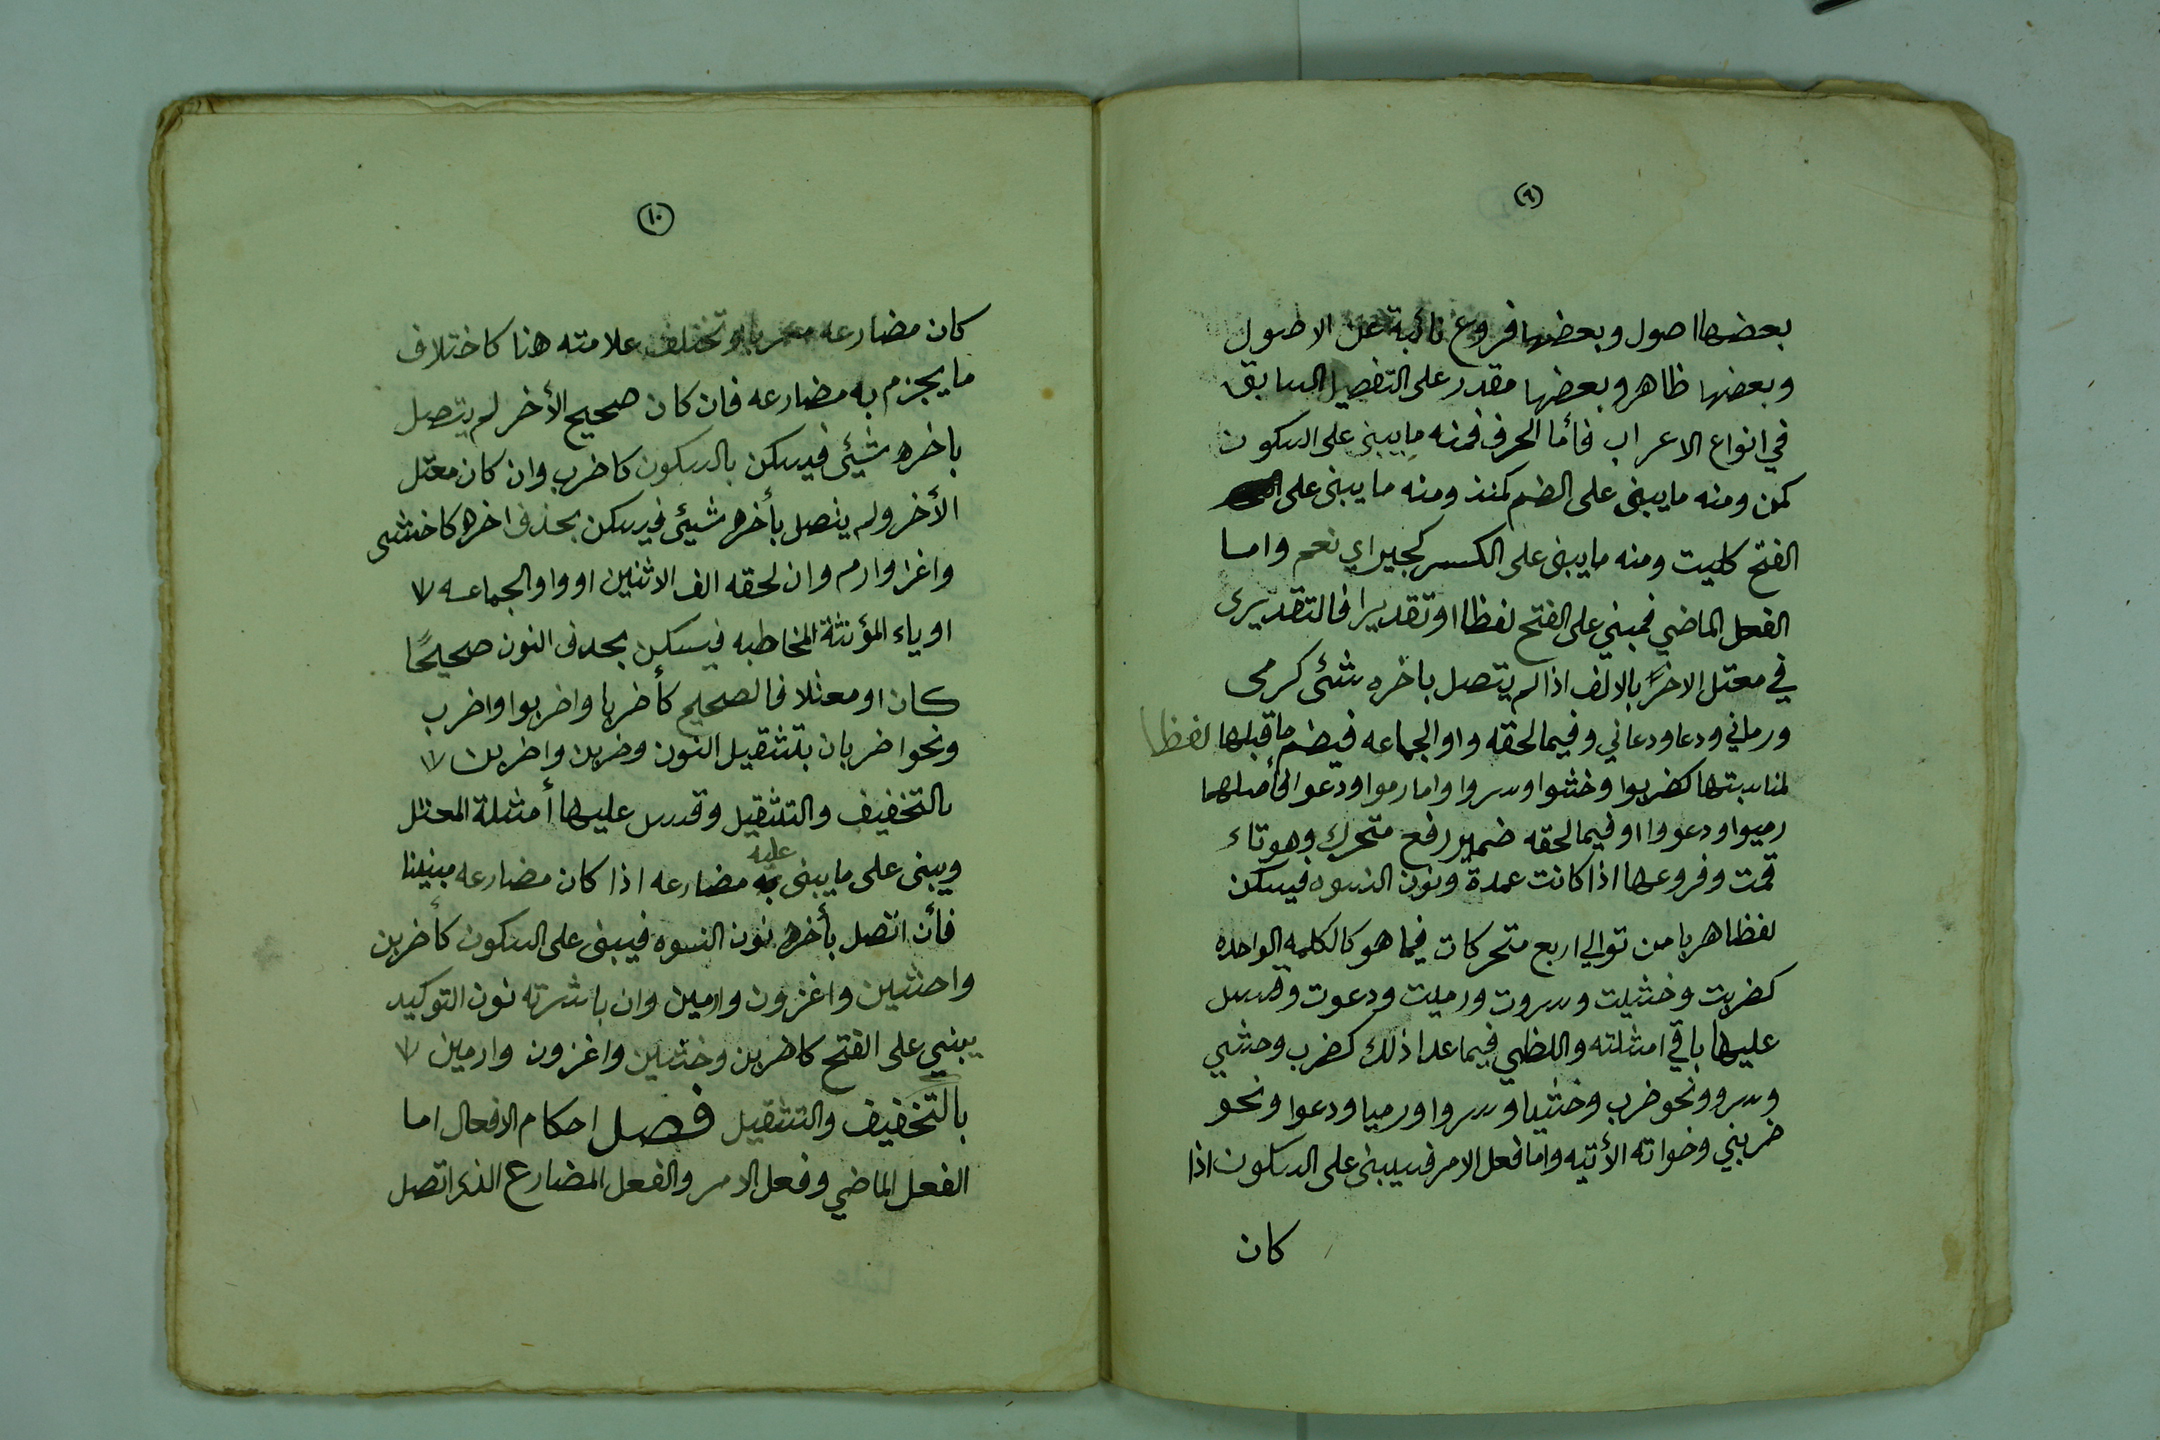 (٩)
بعضها اصول وبعضها فروع نائبة عن الاصول
وبعضها ظاهر وبعضها مقدر على التفصيل السابق
في انواع الاعراب فأما الحرف فمنه مايبنى على السكون
كمن ومنه مايبنى على الضم كمنذ ومنه مايبنى على
الفتح كليت ومنه مايبنى على الكسر كجير اي نعم واما
الفعل الماضي فمبني على الفتح لفظا او تقديرا فالتقديرى
في معتل الاخر بالالف اذا لم يتصل باخره شئى كرمى
ورماني ودعا ودعاني وفيما لحقه واو الجماعه فيضم ما قبلها لفظا
لمناسبتها كضربوا وخشوا وسروا واما رموا ودعوا أصلهما
رميوا ودعووا او فيما لحقه ضمير رفع متحرك وهو تاء
قمت وفروعها اذا كانت عمدة ونون النسوه فيسكن
لفظا هربا من توالي اربع متحركات فيما هو كالكلمه الواحده
كضربت وخشيت وسروت ورميت ودعوت وقس
عليها باقي امثلته واللظي فيما عدا ذلك كضرب وخشي
وسرو ونحو ضرب وخشيا وسروا ورميا ودعوا ونحو
ضربني وخواته الأتيه واما فعل الامر فيبنى على السكون اذا
كان
(١٠)
كان مضارعه معربا وتختلف علامته هنا كاختلاف
ما يجزم به مضارعه فان كان صحيح الأخر لم يتصل
باخره شيئى فيسكن بالسكون كاضرب وان كان معتل
الأخر ولم يتصل بأخره شيئى فيسكن بحذف اخره كاخشى
واغز وارم وان لحقه الف الاثنين او واو الجماعه
او ياء المؤنثة المخاطبه فيسكن بحدف النون صحيحًا
كان او معتلا فالصحيح كأضربا واضربوا واضرب
ونحو اضربان بتشقيل النون وضربن واضربن
بالتخفيف والتثقيل وقس عليها أمثلة المعتل
ويبنى على ما يبنى عليه مضارعه اذا كان مضارعه مبنينا
فأن اتصل بأخره نون النسوه فيبنى على السكون كأضربن
واحشين واغزون وارمين وان باشرته نون التوكيد
يبني على الفتح كاضربن وخشين واغزون وارمين
بالتخفيف والتثقيل فصل احكام الافعال اما
الفعل الماضي وفعل الامر والفعل المضارع الذى اتصل